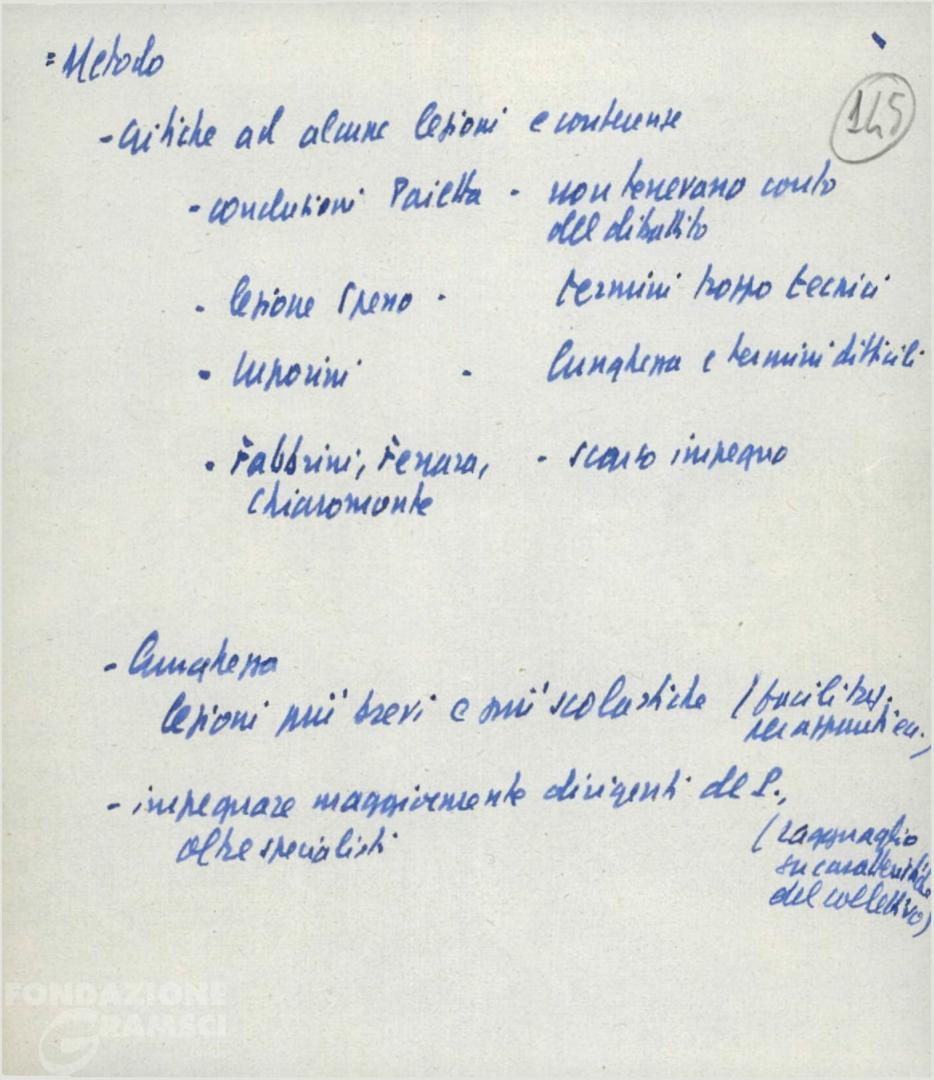 = Metodo
145
- Critiche ad alcune lezioni e conferenze
- conclusioni Paietta - non tenevano conto
del dibattito
- lezione Spesso - termini troppo tecnici
- Luporini - lunghezza e termini difficili
- Fabbrini, Ferrara, - scarso impegno
Chiaromonte
- Lunghezza
lezioni più brevi e più scolastiche (facilitaz.
per appunti ecc.)
- impegnare maggiormente dirigenti del P.,
oltre specialisti
(ragguaglio
su caratteristiche
del collettivo)
FONDAZIONE
GRAMSCI